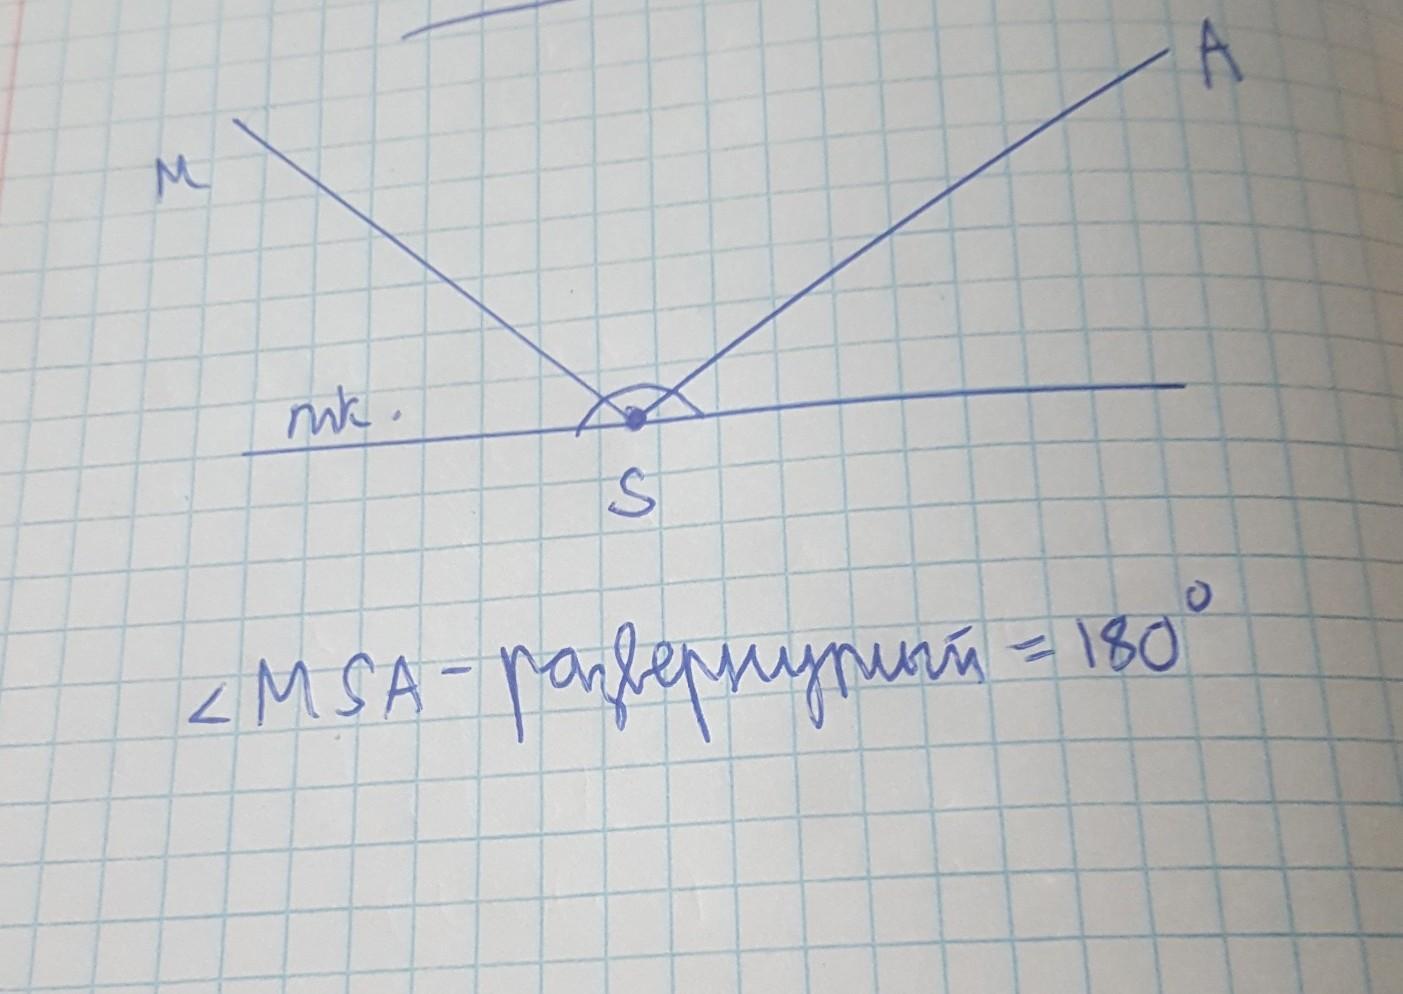 A
M
тк.
S
<MSA - развернутый = 180°